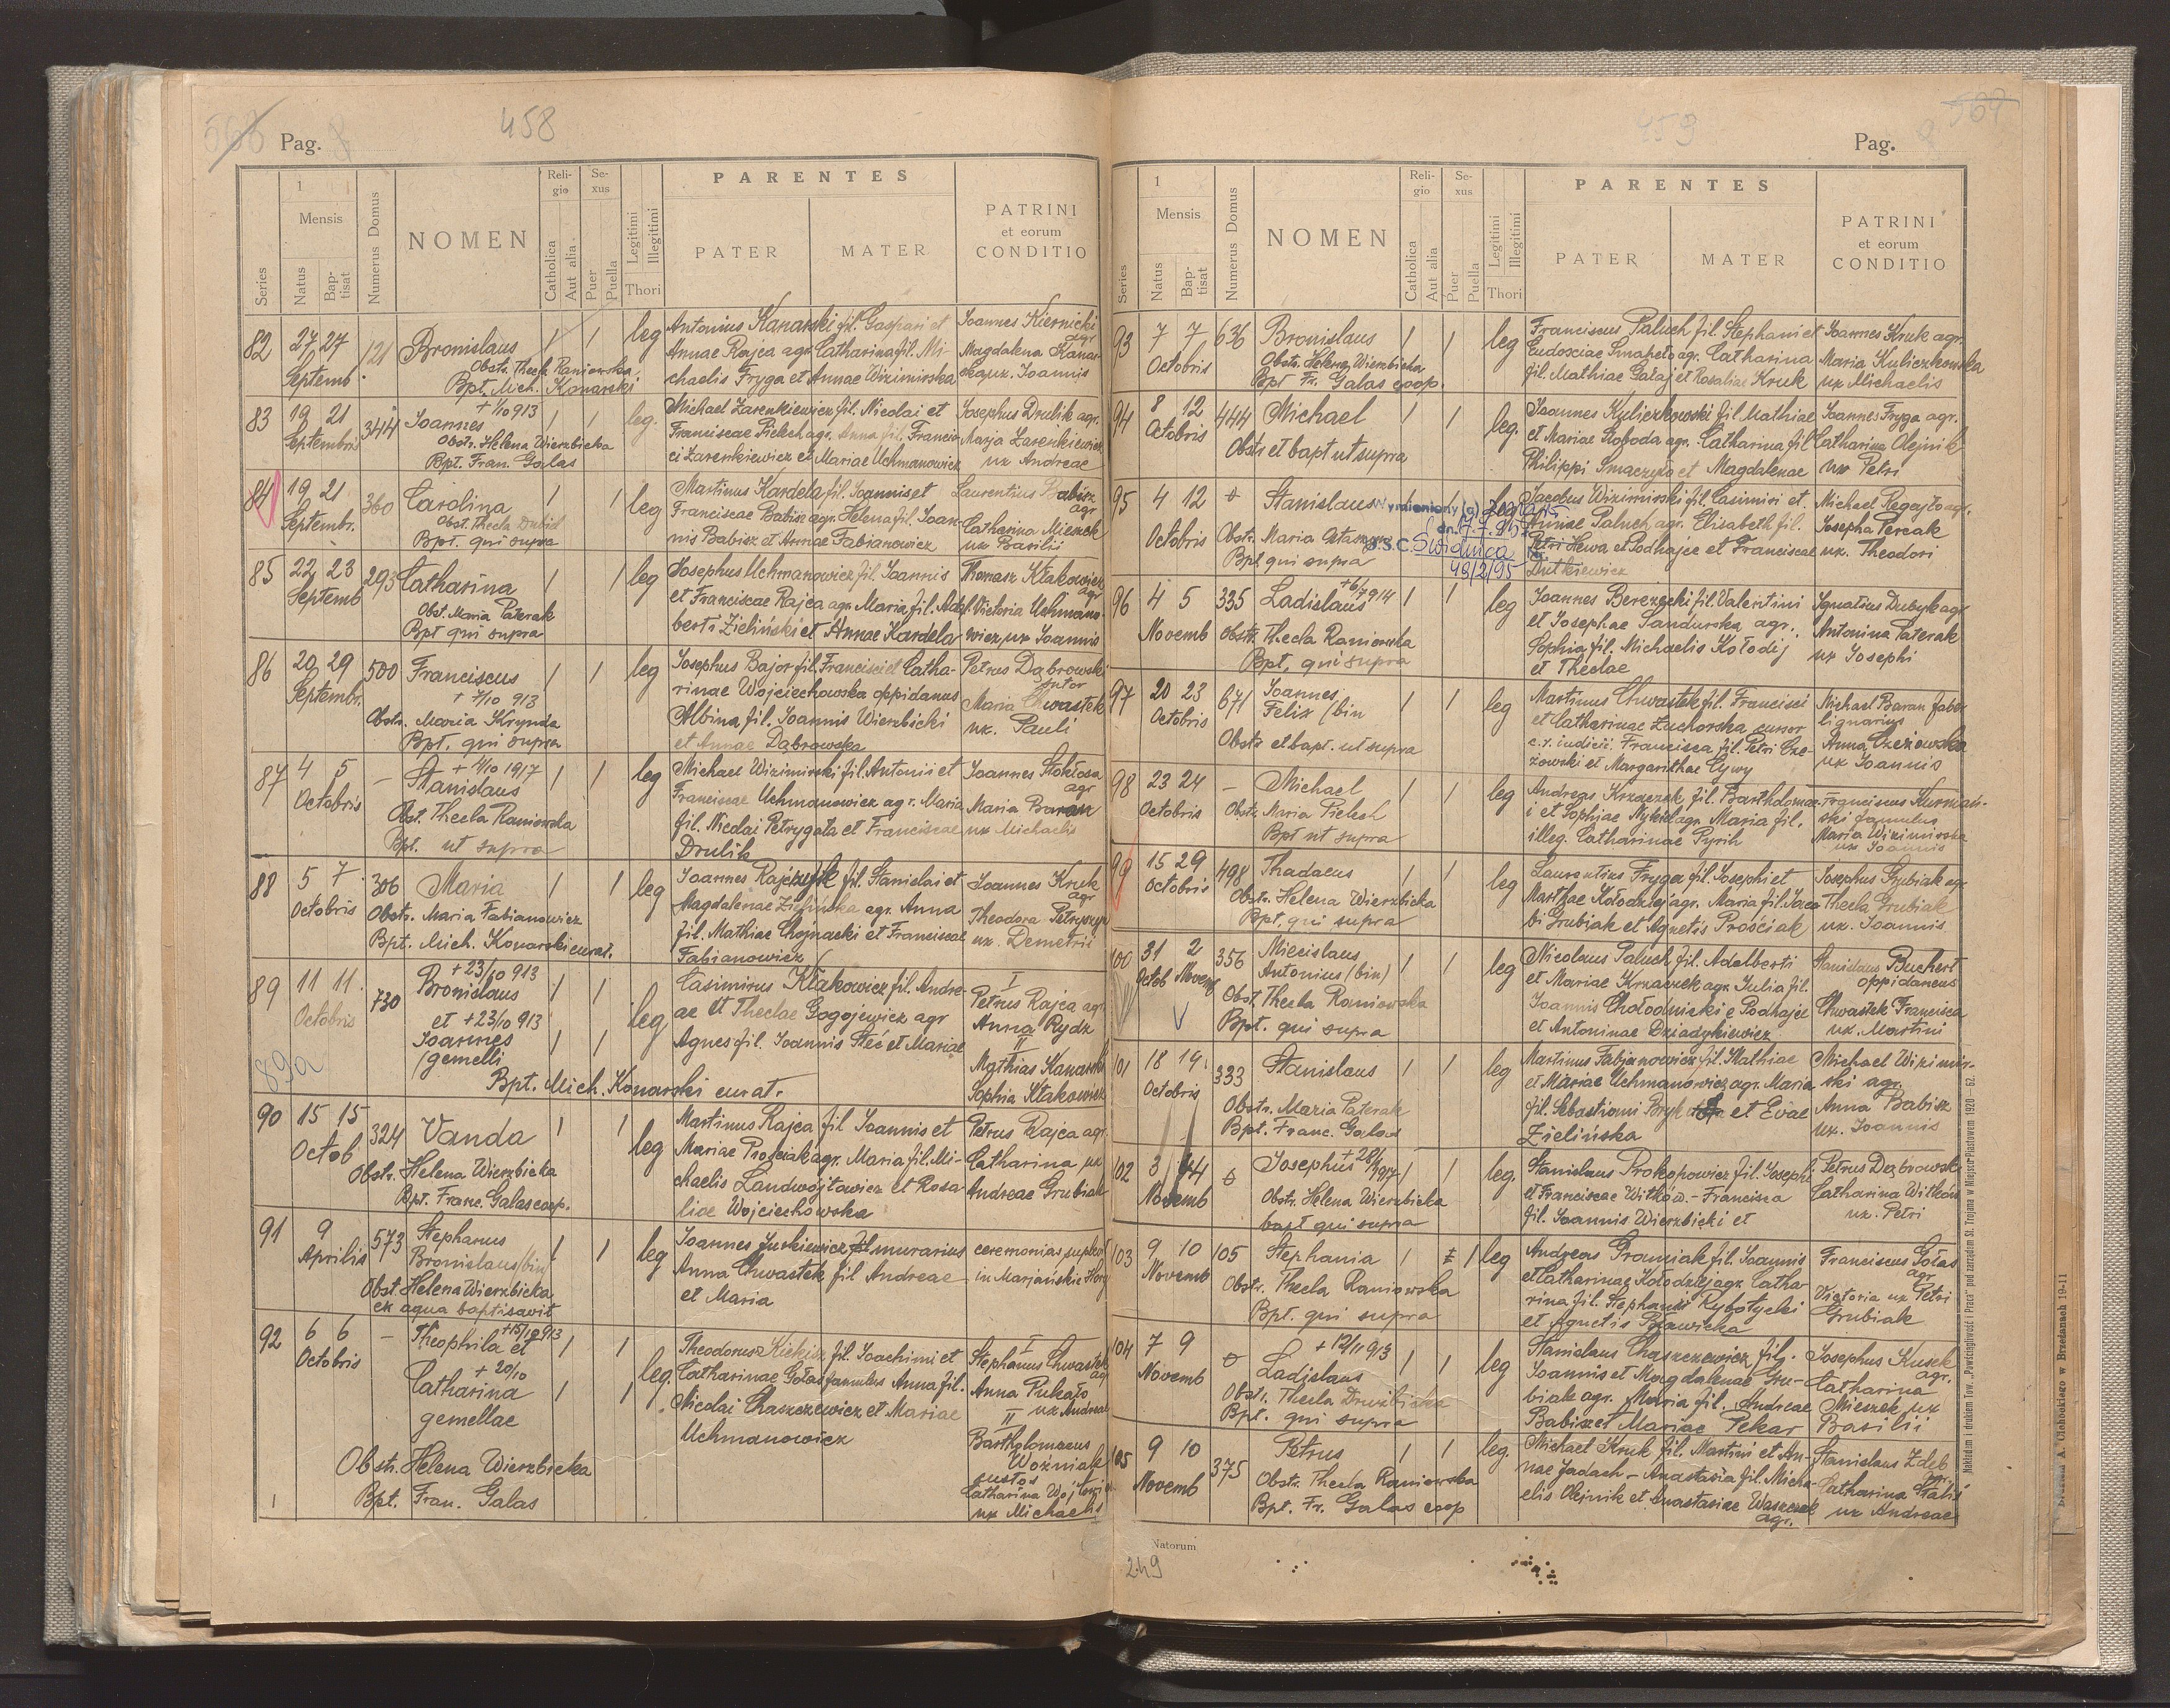 568 Pag. 8
458
Series
1
Mensis
Natus
Baptisat
Numerus Domus
NOMEN
Religio
Catholica
Aut alia
Sexus
Puer
Puella
Legitimi
Illegitimi
Thori
PARENTES
PATER
MATER
PATRINI
et eorum
CONDITIO
82
27 27
Septemb.
121
Bronislaus
Obstr. Thecla Raniowska
Bpt. Mich. Konarski
1 1
leg
Antonius Kanarski fil. Gaspari et
Annae Rajca agr. Catharina fil. Mi-
chaelis Fryga et Annae Wizimirska
Joannes Kiernicki
agr
Magdalena Kanar-
ska ux. Joannis
83
19 21
Septembr.
344
+ 1/10 913
Joannes
Obstr. Helena Wierzbicka
Bpt. Fran. Galas
1 1
leg.
Michael Zarenkiewicz fil. Nicolai et
Franciscae Pielech agr. Anna fil. Francis-
ci Zarenkiewicz et Mariae Uchmanowicz
Josephus Drulik agr.
Marja Zarenkiewicz
ux Andreae
84
19 21
Septembr.
360
Carolina
Obst. Thecla
Bpt. qui supra
1 1
leg
Martinus Kardela fil. Joannis et
Franciscae Babisz agr. Helena fil. Joan-
nis Babisz et Annae Fabianowicz
Laurentius Babisz
agr
Catharina Mieszek
ux Basilii
85
22 23
Septemb
293
Catharina
Obst. Maria Paterak
Bpt qui supra
1 1
leg
Josephus Uchmanowicz fil. Joannis
et Franciscae Rajca agr. Maria fil. Adal-
berti Zieliński et Annae Kardela
Thomasz Kłakowicz
agr
Victoria Uchmano-
wicz ux Joannis
86
20 29
Septembr.
500
Franciscus
+ 7/10 913
Obstr. Maria Krynda
Bpt. qui supra
1 1
leg
Josephus Bajor fil. Francisci et Catha-
rinae Wojciechowska oppidanus
Albina fil. Joannis Wierzbicki
et Annae Dąbrowska
Petrus Dąbrowski
sutor
Maria Chwastek
ux. Pauli
87
4 5
Octobris
-
+ 4/10 1917
Stanislaus
Obst. Thecla Raniowska
Bpt. ut supra
1 1
leg
Michael Wizimirski fil. Antonii et
Franciscae Uchmanowicz agr. Maria
fil. Nicolai Petrygała et Franciscae
Drulik
Joannes Stokłosa
agr
Maria Baran
ux Michaelis
88
5 7
Octobris
306
Maria
Obstr. Maria Fabianowicz
Bpt. Mich. Konarski curat.
1 1
leg
Joannes Rajczyk fil. Stanislai et
Magdalenae Zielińska agr. Anna
fil. Mathiae Chojnacki et Franciscae
Fabianowicz
Joannes Kruk
agr
Theodora
ux. Demetrii
89
11 11.
Octobris
730
89a
+ 23/10 913
Bronislaus
et + 23/10 913
Joannes
/gemelli
Bpt. Mich. Konarski curat.
1 1
1 1
leg
Casimirus Kłakowicz fil. Andre-
ae et Theclae Gogojewicz agr
Agnes fil. Joannis Steć et Mariae
I
Petrus Rajca agr
Anna Rydz
II
Mathias Kanarski
Sophia Kłakowicz
90
15 15
Octob
324
Vanda
Obstr. Helena Wierzbicka
Bpt. Franc. Galas coop.
1 1
leg
Martinus Rajca fil Joannis et
Mariae Prościak agr. Maria fil. Mi-
chaelis Landwójtowicz et Rosa-
liae Wojciechowska
Petrus Rajca agr.
Catharina ux
Andreae Grubiak
91
9
Aprilis
573
Stephanus
Bronislaus/bin/
Obst. Helena Wierzbicka
ex aqua baptisavit
1 1
leg
Joannes Juskiewicz fil murarius
Anna Chwastek fil Andreae
et Maria
ceremonias suplevit
in Marjańskie Hory
92
6 6
Octobris
-
+ 15/12 913
Theophila et
+ 20/10
Catharina
gemellae
Obstr. Helena Wierzbicka
Bpt. Fran. Galas
1 1
1 1
leg.
Theodorus Kiekisz fil. Joachimi et
Catharinae Gołas famulus Anna fil.
Nicolai Chaszczewicz et Mariae
Uchmanowicz
I
Stephanus Chwastek
agr
Anna Pukało
ux Andreae
II
Bartholomaeus
Wozniak
custos
Catharina
ux Michaelis
459
Pag. 569
Series
1
Mensis
Natus
Baptisat
Numerus Domus
NOMEN
Religio
Catholica
Aut alia
Sexus
Puer
Puella
Legitimi
Illegitimi
Thori
PARENTES
PATER
MATER
PATRINI
et eorum
CONDITIO
93
7 7
Octobris
636
Bronislaus
Obstr. Helena Wierzbicka
Bpt Fr. Galas coop.
1 1
leg
Franciscus Paluch fil. Stephani et
Eudosciae Smaheło agr. Catharina
fil. Mathiae Gałaj et Rosaliae Kruk
Joannes Kruk agr.
Maria Kuliczkowska
ux Michaelis
94
8 12
Octobris
444
Michael
Obstr et bapt ut supra
1 1
leg.
Joannes Kuliczkowski fil Mathiae
et Mariae Słoboda agr. Catharina fil
Philippi Smaczyło et Magdalenae
Joannes Fryga agr.
Catharina Olejnik
ux Petri
95
4 12
Octobris
Stanislaus
Obstr. Maria
Bpt. qui supra
wymieniony (a) zmarł
dn. 17.7.95
U.S.C. Świdnica Nr.
48/2/95
Jacobus Wizimirski fil. Casimiri et
Annae Paluch agr. Elisabeth fil.
Petri Hewa e Podhajce et Franciscae
Dutkiewicz
Michael Regajło agr.
Josepha Percak
ux. Theodori
96
4 5
Novemb
335
+ 6/7 914
Ladislaus
Obstr. Thecla Raniowska
Bpt. qui supra
1 1
leg
Joannes Berezecki fil. Valentini
et Josephae Sandurska agr.
Sophia fil. Michaelis Kołodij
et Theclae
Ignatius Dubyk agr
Antonina Paterak
ux Josephi
97
20 23
Octobris
671
Joannes
Felix /bin
Obstr et bapt. ut supra
1 1
leg
Martinus Chwastek fil. Francisci
et Catharinae Żuchorska cursor
c.r. iudicii. Francisca fil. Petri Cze-
żowski et Margarithae Cywy
Michael Baran faber
lignarius
Anna Czeżowska
ux Joannis
98
23 24
Octobris
-
Michael
Obstr. Maria Pielech
Bpt ut supra
1 1
leg
Andreas Krzaczek fil. Bartholomae-
i et Sophiae Mykid agr. Maria fil.
illeg. Catharinae Pyrih
Franciscus
ski famulus
Maria Wizimirska
ux Joannis
99
15 29
Octobris
498
Thadaeus
Obstr. Helena Wierzbicka
Bpt. qui supra
1 1
leg
Laurentius Fryga fil. Josephi et
Marthae Kołodziej agr. Maria fil. Jaco-
bi Grubiak et Agnetis Prościak
Josephus Grubiak agr
Thecla Grubiak
ux. Joannis
100
31 2
Octob Novemb
356
Miecislaus
Antonius /bin/
Obst. Thecla Raniowska
Bpt. qui supra
1 1
leg
Nicolaus Paluch fil. Adalberti
et Mariae Krzaczek agr. Julia fil.
Joannis Chołodnicki e Podhajce
et Antoninae Dziadykiewicz
Stanislaus Buchert
oppidaneus
Chwastek Francisca
ux. Martini
101
18 19.
Octobris
333
Stanislaus
Obstr. Maria Paterak
Bpt. Franc. Galas
1 1
leg
Martinus Fabjanowicz fil. Mathiae
et Mariae Uchmanowicz agr. Maria
fil. Sebastiani Bryk et Evae
Zielińska
Michael Wizimir-
ski agr.
Anna Babisz
ux. Joannis
102
3 44
Novemb
Josephus
Obstr. Helena Wierzbicka
bapt qui supra
1 1
leg.
Stanislaus Prokopowicz fil. Josephi
et Franciscae Witków. - Francisca
fil. Joannis Wierzbicki et
Petrus Dąbrowski
Catharina Witków
ux. Petri
103
9 10
Novemb
105
Stephania
Obstr. Thecla Raniowska
Bpt. qui supra
1 1
leg
Andreas Graniak fil. Joannis
et Catharinae Kołodziej agr. Catha-
rina fil. Stephanis Rybotycki
et Agnetis
Franciscus Gołas
agr
Victoria ux Petri
Grubiak
104
7 9
Novemb
+ 12/11 913
Ladislaus
Obst. Thecla
Bpt. qui supra
1 1
leg
Stanislaus Chaszczewicz fil.
Joannis et Magdalenae Gru-
biak agr. Maria fil. Andreae
Babisz et Mariae Pekar
Josephus Kusek
agr.
Catharina
Mieszek ux
Basilii
105
9 10
Novemb
375
Petrus
Obstr. Thecla Raniowska
Bpt. Fr. Galas coop
1 1
leg.
Michael Kruk fil. Martini et An-
nae Jadach - Anastasia fil. Micha-
elis Olejnik et Anastasiae Waszczak
agr.
Stanislaus Zdeb
agr.
Catharina
ux Andreae
Natorum
249
Nakładem i drukiem Tow. „Powściągliwość i Praca” pod zarządem St. Trojana w Miejscu Piastowem 1920 — 62.
A. Głabockiego w Brzeżanach 19-11